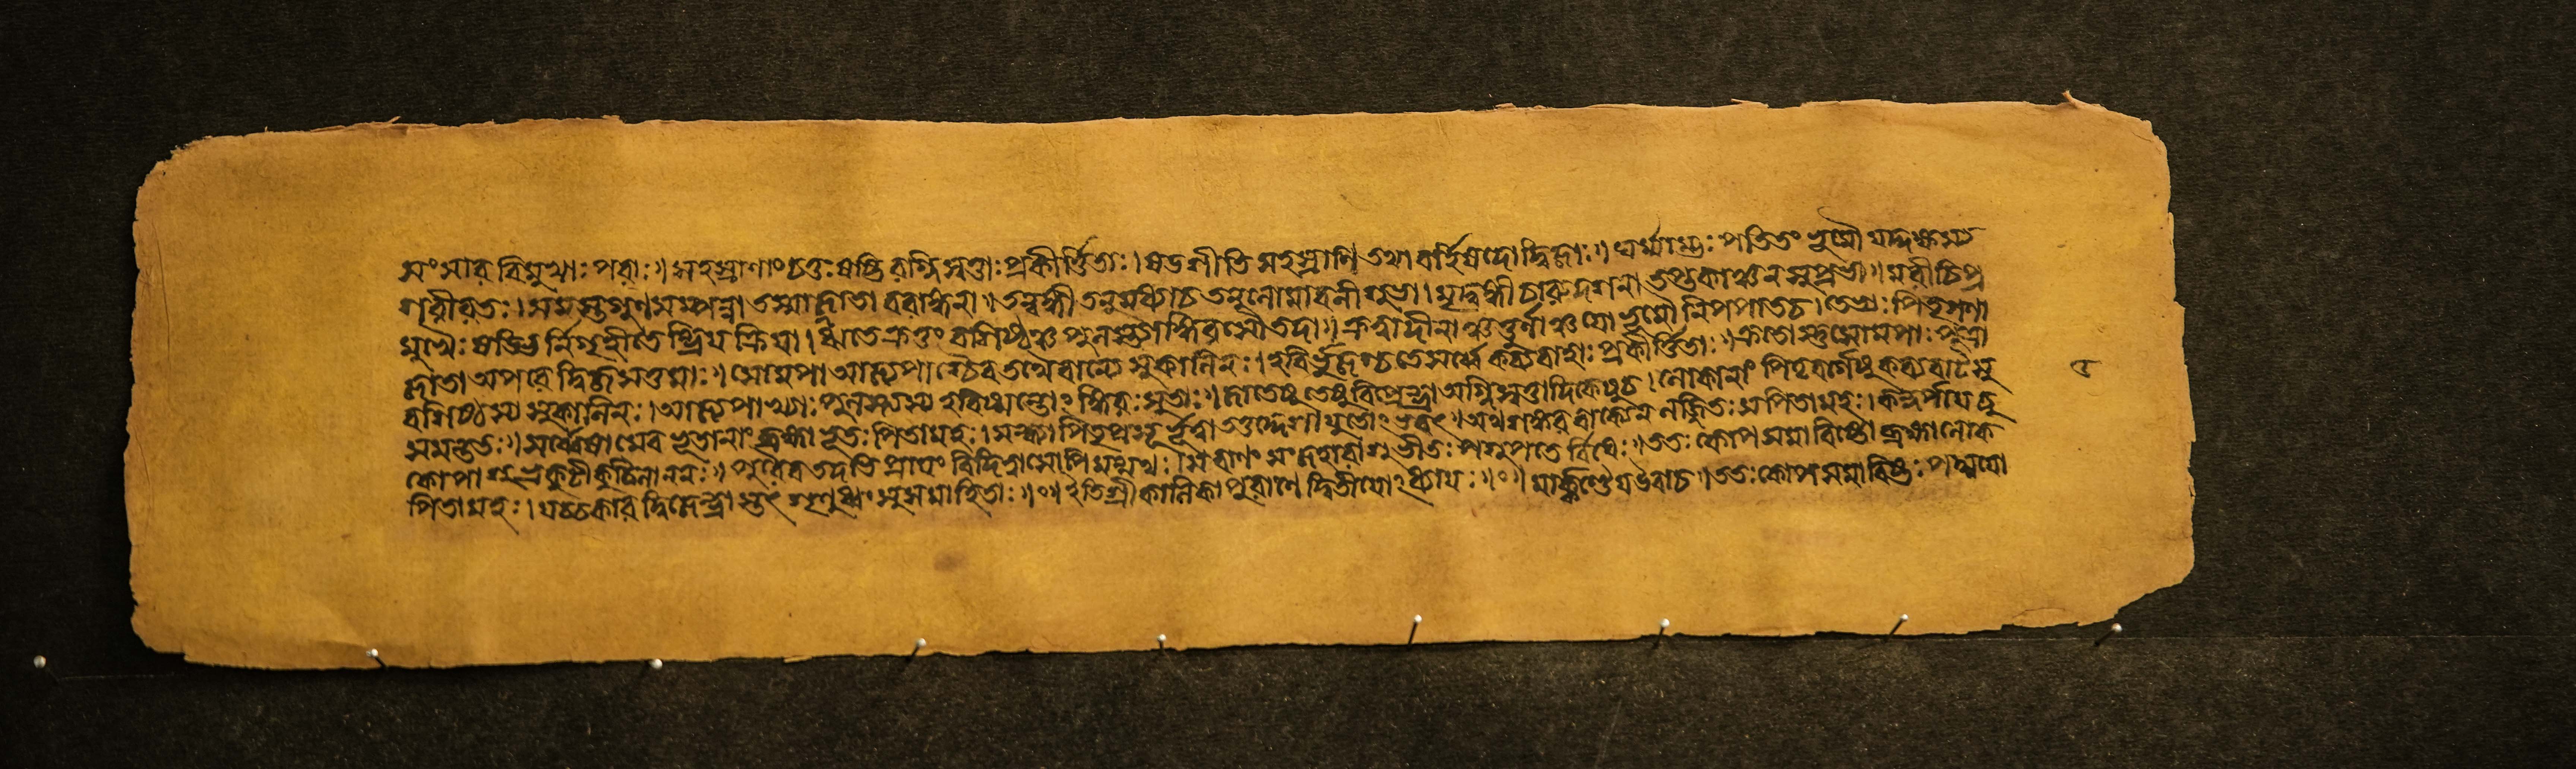 সংসাৰ বিমুখাঃ পৰাঃ॥ সহস্রাণাং চতুঃষষ্টিৰগ্নিষ্বত্তাঃ প্রকীর্ত্তিতাঃ। ষডশীতি সহস্রাণি তথা বর্হিষদো দ্বিজাঃ॥ ঘর্ম্মাম্ভঃ পতিতং ভূমৌ যদ্দক্ষস্য
শৰীৰতঃ। সমস্তগুণসম্পন্না তস্মাজ্জাতা বৰাঙ্গনা॥ তন্বঙ্গী তনুমধ্যাচ তনুলোমাবলী শুভা। মৃদ্বঙ্গী চাৰুদশনা তপ্তকাঞ্চন সুপ্রভা॥ মৰীচিপ্র
মুখৈঃ ষড্ভির্নিগৃহীতেন্দ্রিয় ক্রিয়া। ঋতে ক্রতুং বশিষ্ঠঞ্চ পুলস্ত্যাঙ্গিৰসৌ তদা॥ ক্রত্বাদীনাঞ্চতুর্ণাঞ্চ যো ভূমৌ নিপপাতচ। তেভ্যঃ পিতৃগণা
জাতা অপৰে দ্বিজসত্তমাঃ॥ সোমপা আজ্যপা শ্চৈব তথৈবান্যে সুকালিনঃ। হবির্ভুজশ্চতে সর্ব্বে কব্যবাহাঃ প্রকীর্ত্তিতাঃ॥ ক্রতোস্তু সোমপাঃ পুত্রা
বশিষ্ঠস্য সুকালিনঃ। আজ্যপাখ্যাঃ পুলস্ত্যস্য হবিষ্মন্তোঽঙ্গিৰঃ সুতাঃ॥ জাতেষু তেষু বিপ্রেন্দ্রা অগ্নিষ্বত্তাদিকেষুচ। লোকানাং পিতৃবর্গেষু কব্যবাটসু
সমন্ততঃ॥ সর্ব্বেষামেব ভূতানাং ব্রহ্মা ভূতঃ পিতামহঃ। সন্ধ্যা পিতৃপ্রসূর্ভূত্বা অথ শঙ্কৰ বাক্যেন লজ্জিতঃ স পিতামহঃ। কন্দর্পায় চু
কোপাশু ভ্রুকুটীকুটিলাননঃ॥ পুৰৈব তদভিপ্রায়ং বিদিত্বা সোপি মন্মথঃ। স্ববাণং সংজহাৰাশু ভীতঃ পশুপতে র্বিধেঃ॥ ততঃ কোপ সমাবিষ্টো ব্রহ্মা লোক
পিতামহঃ। যচ্চকাৰ দ্বিজেন্দ্রাস্তৎ শৃণুধ্বং সুসমাহিতাঃ॥০॥ ইতি শ্রীকালিকাপুৰাণে দ্বিতীয়োঽধ্যায়ঃ॥০॥ মার্ক্কণ্ডেয়উবাচ॥ ততঃ কোপসমাবিষ্টঃ পদ্মযো